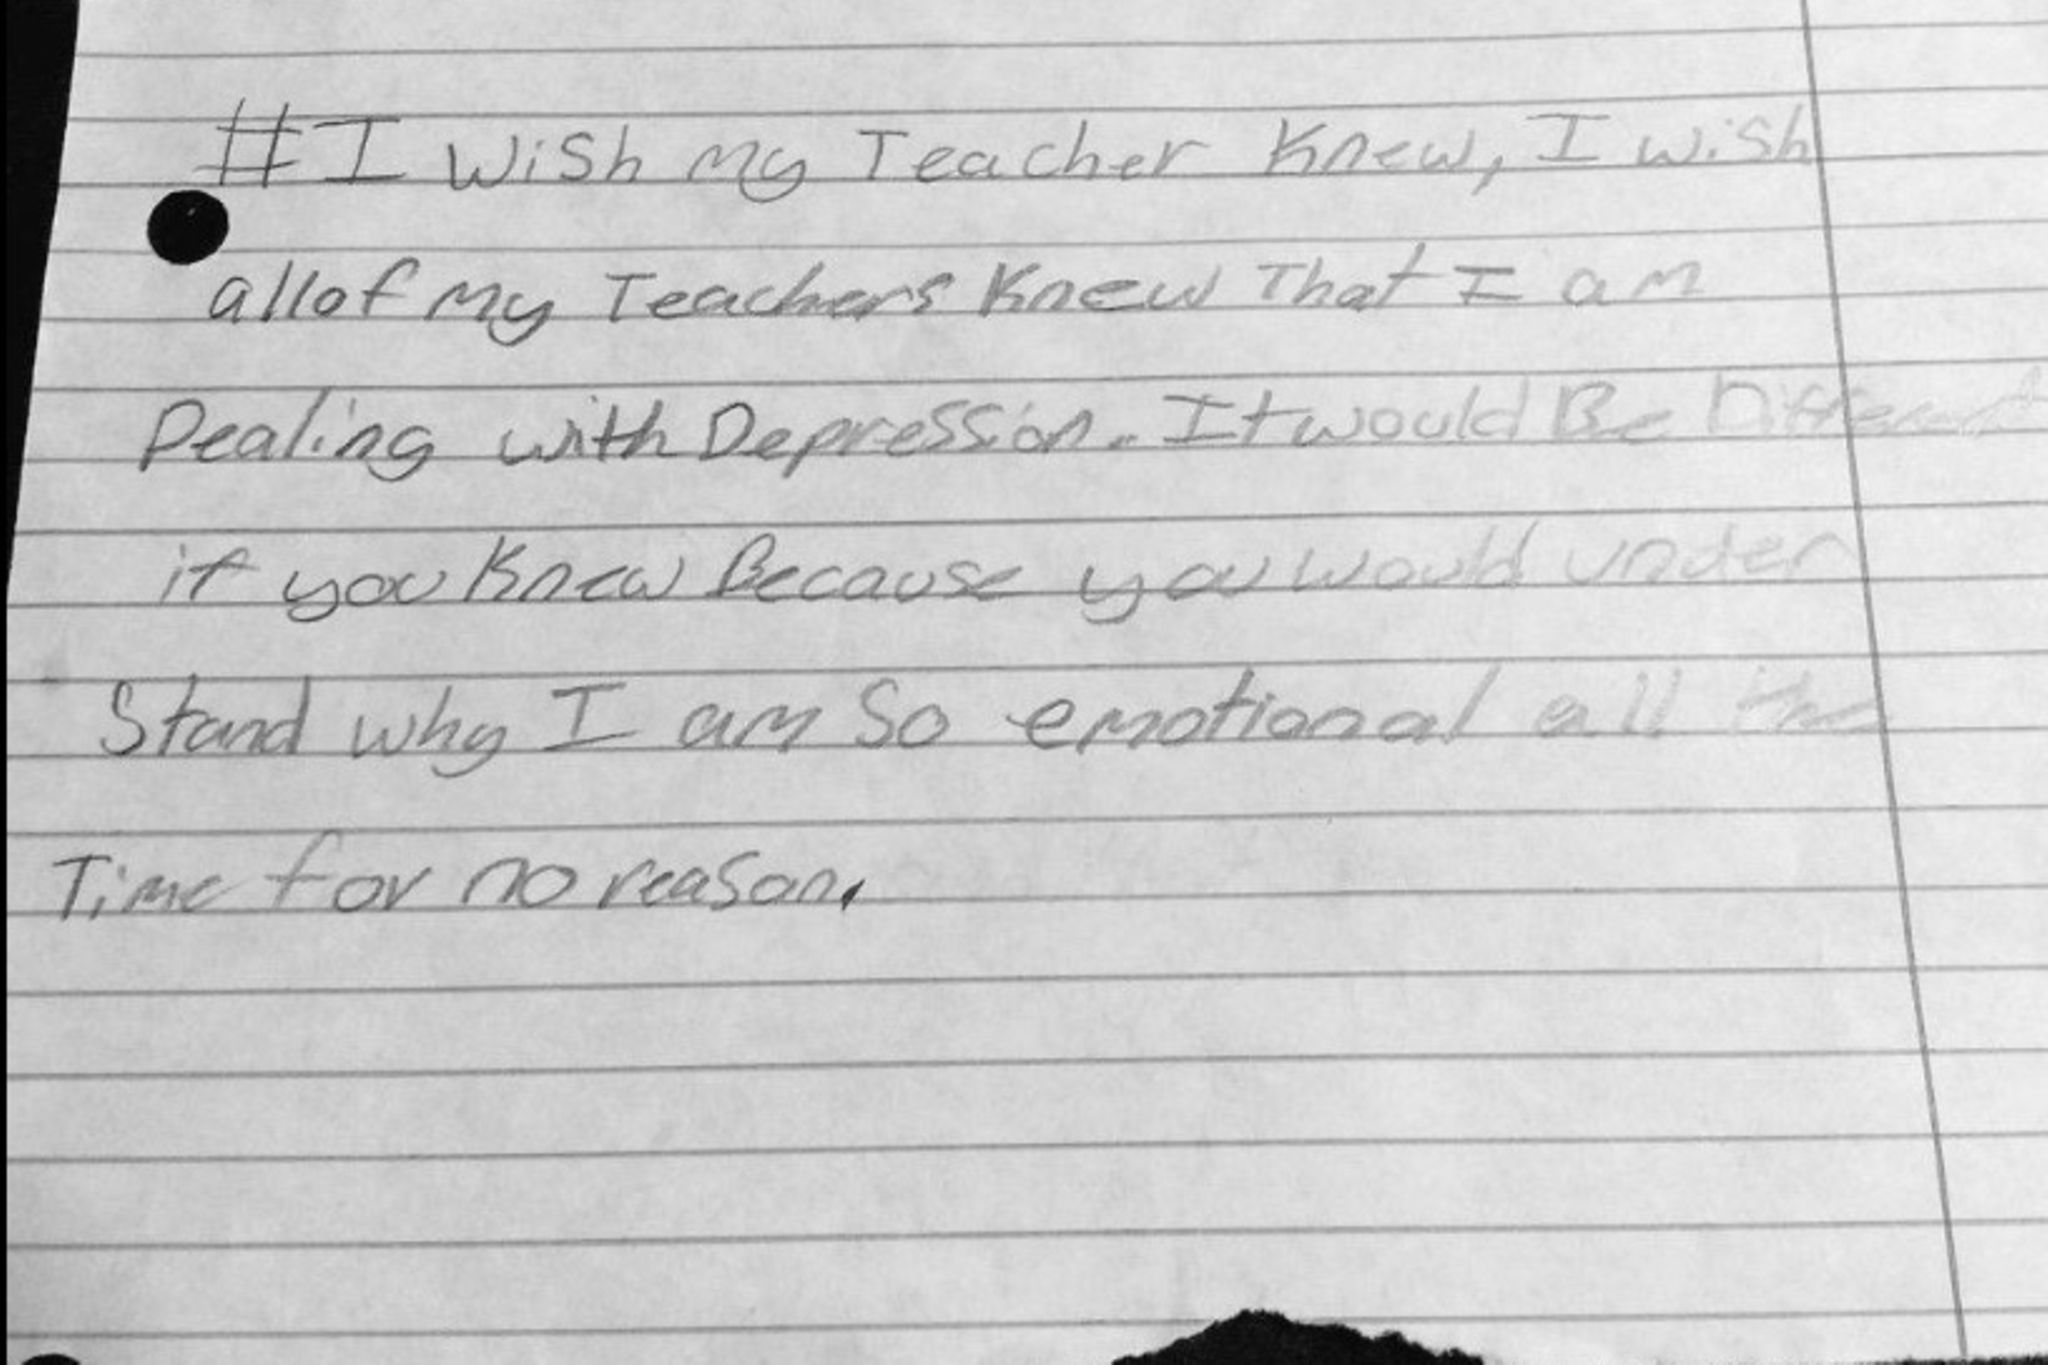 #I wish my Teacher Knew, I wish
all of my Teachers Knew That I am
Dealing with Depression. It would Be Different
if you Knew Because you would under
Stand why I am So emotional all the
Time for no reason.